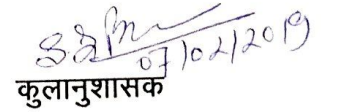 07/02/2019
कुलानुशासक